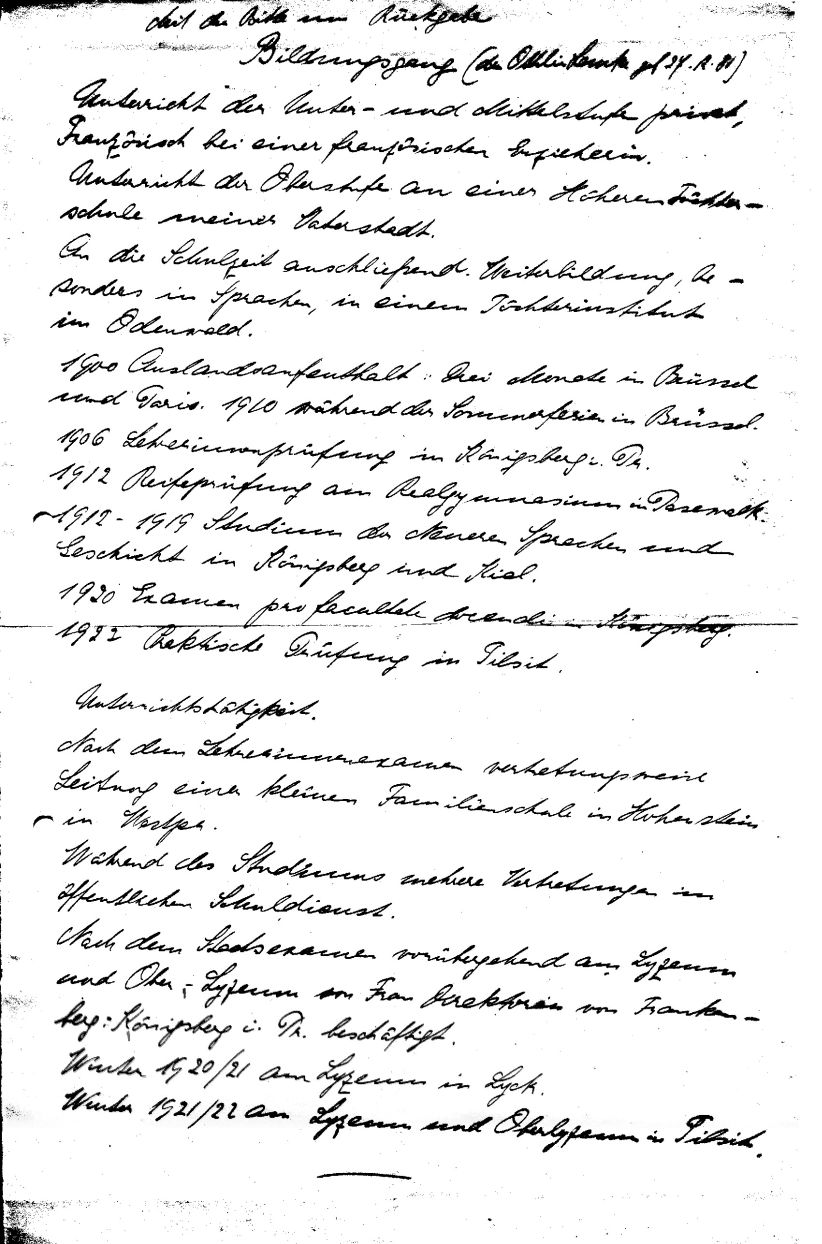 Mit der Bitte um Rückgabe
Bildungsgang (der Ottilie Lemke geb 27. 12. 81)
Unterricht der Unter- und Mittelstufe privat,
Französisch bei einer französischen Erzieherin.
Unterricht der Oberstufe an einer Höheren Töchter-
schule meiner Vaterstadt.
An die Schulzeit anschließend. Weiterbildung, be-
sonders in Sprachen, in einem Töchterinstitut
im Odenwald.
1900 Auslandsaufenthalt: Drei Monate in Brüssel
und Paris. 1910 während der Sommerferien in Brüssel.
1906 Lehrerinnenprüfung in Königsberg i. Pr.
1912 Reifeprüfung am Realgymnasium in Pasewalk.
1912 - 1919 Studium der Neueren Sprachen und
Geschichte in Königsberg und Kiel.
1920 Examen pro facultate docendi in Königsberg.
1922 Praktische Prüfung in Tilsit.
Unterrichtstätigkeit.
Nach dem Lehrerinnenexamen vertretungsweise
Leitung einer kleinen Familienschule in Hohenstein
in Westpr.
Während des Studiums mehrere Vertretungen im
öffentlichen Schuldienst.
Nach dem Staatsexamen vorübergehend am Lyzeum
und Ober-Lyzeum von Frau Direktorin von Franken-
berg: Königsberg i. Pr. beschäftigt.
Winter 1920/21 am Lyzeum in Lyck.
Winter 1921/22 am Lyzeum und Oberlyzeum in Tilsit.